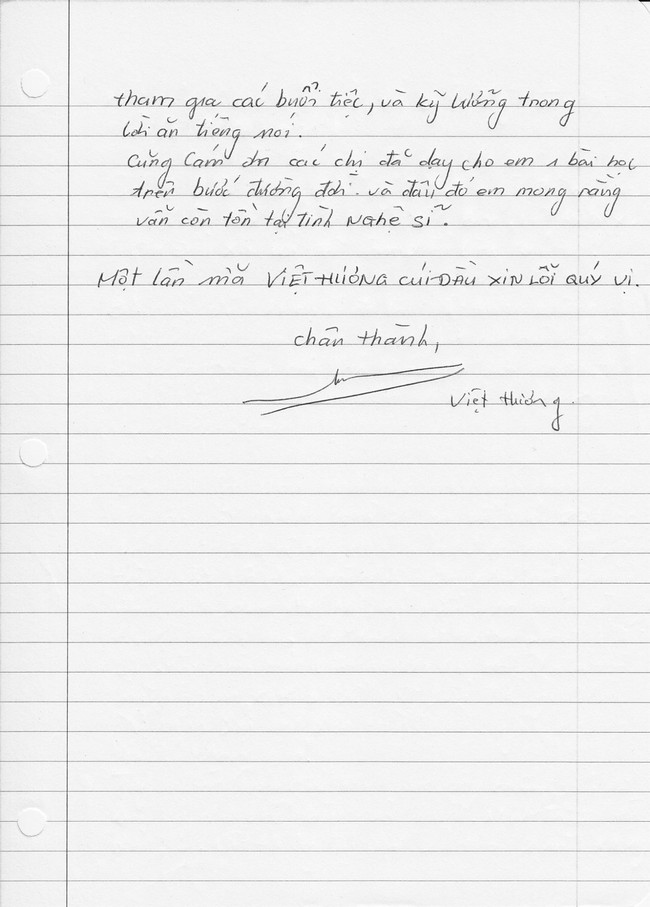 tham gia các buổi tiệc, và kỹ lưỡng trong
lời ăn tiếng nói.
cũng cám ơn các chị đã dạy cho em 1 bài học
trên bước đường đời. và đâu đó em mong rằng
vẫn còn tồn tại tình NGHỆ SĨ.
MỘT lần nữa VIỆT HƯƠNG CÚI ĐẦU XIN LỖI QUÝ VỊ.
chân thành,
Việt Hương.